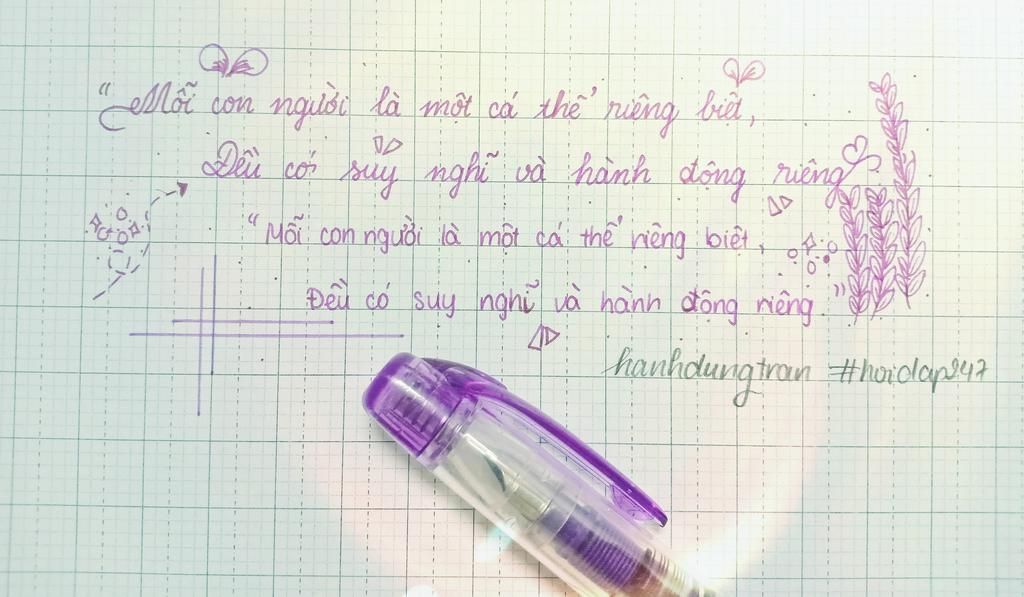 “ Mỗi con người là một cá thể riêng biệt,
Đều có suy nghĩ và hành động riêng
“ Mỗi con người là một cá thể riêng biệt,
Đều có suy nghĩ và hành động riêng ”
hanhdungtran #hoidap247